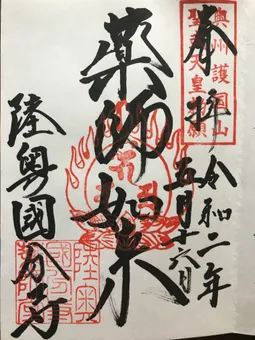 奥州護国山
聖武天皇勅願
奉拝
令和二年
五月十六日
薬師如来
陸奥國分寺
陸奥
國分寺